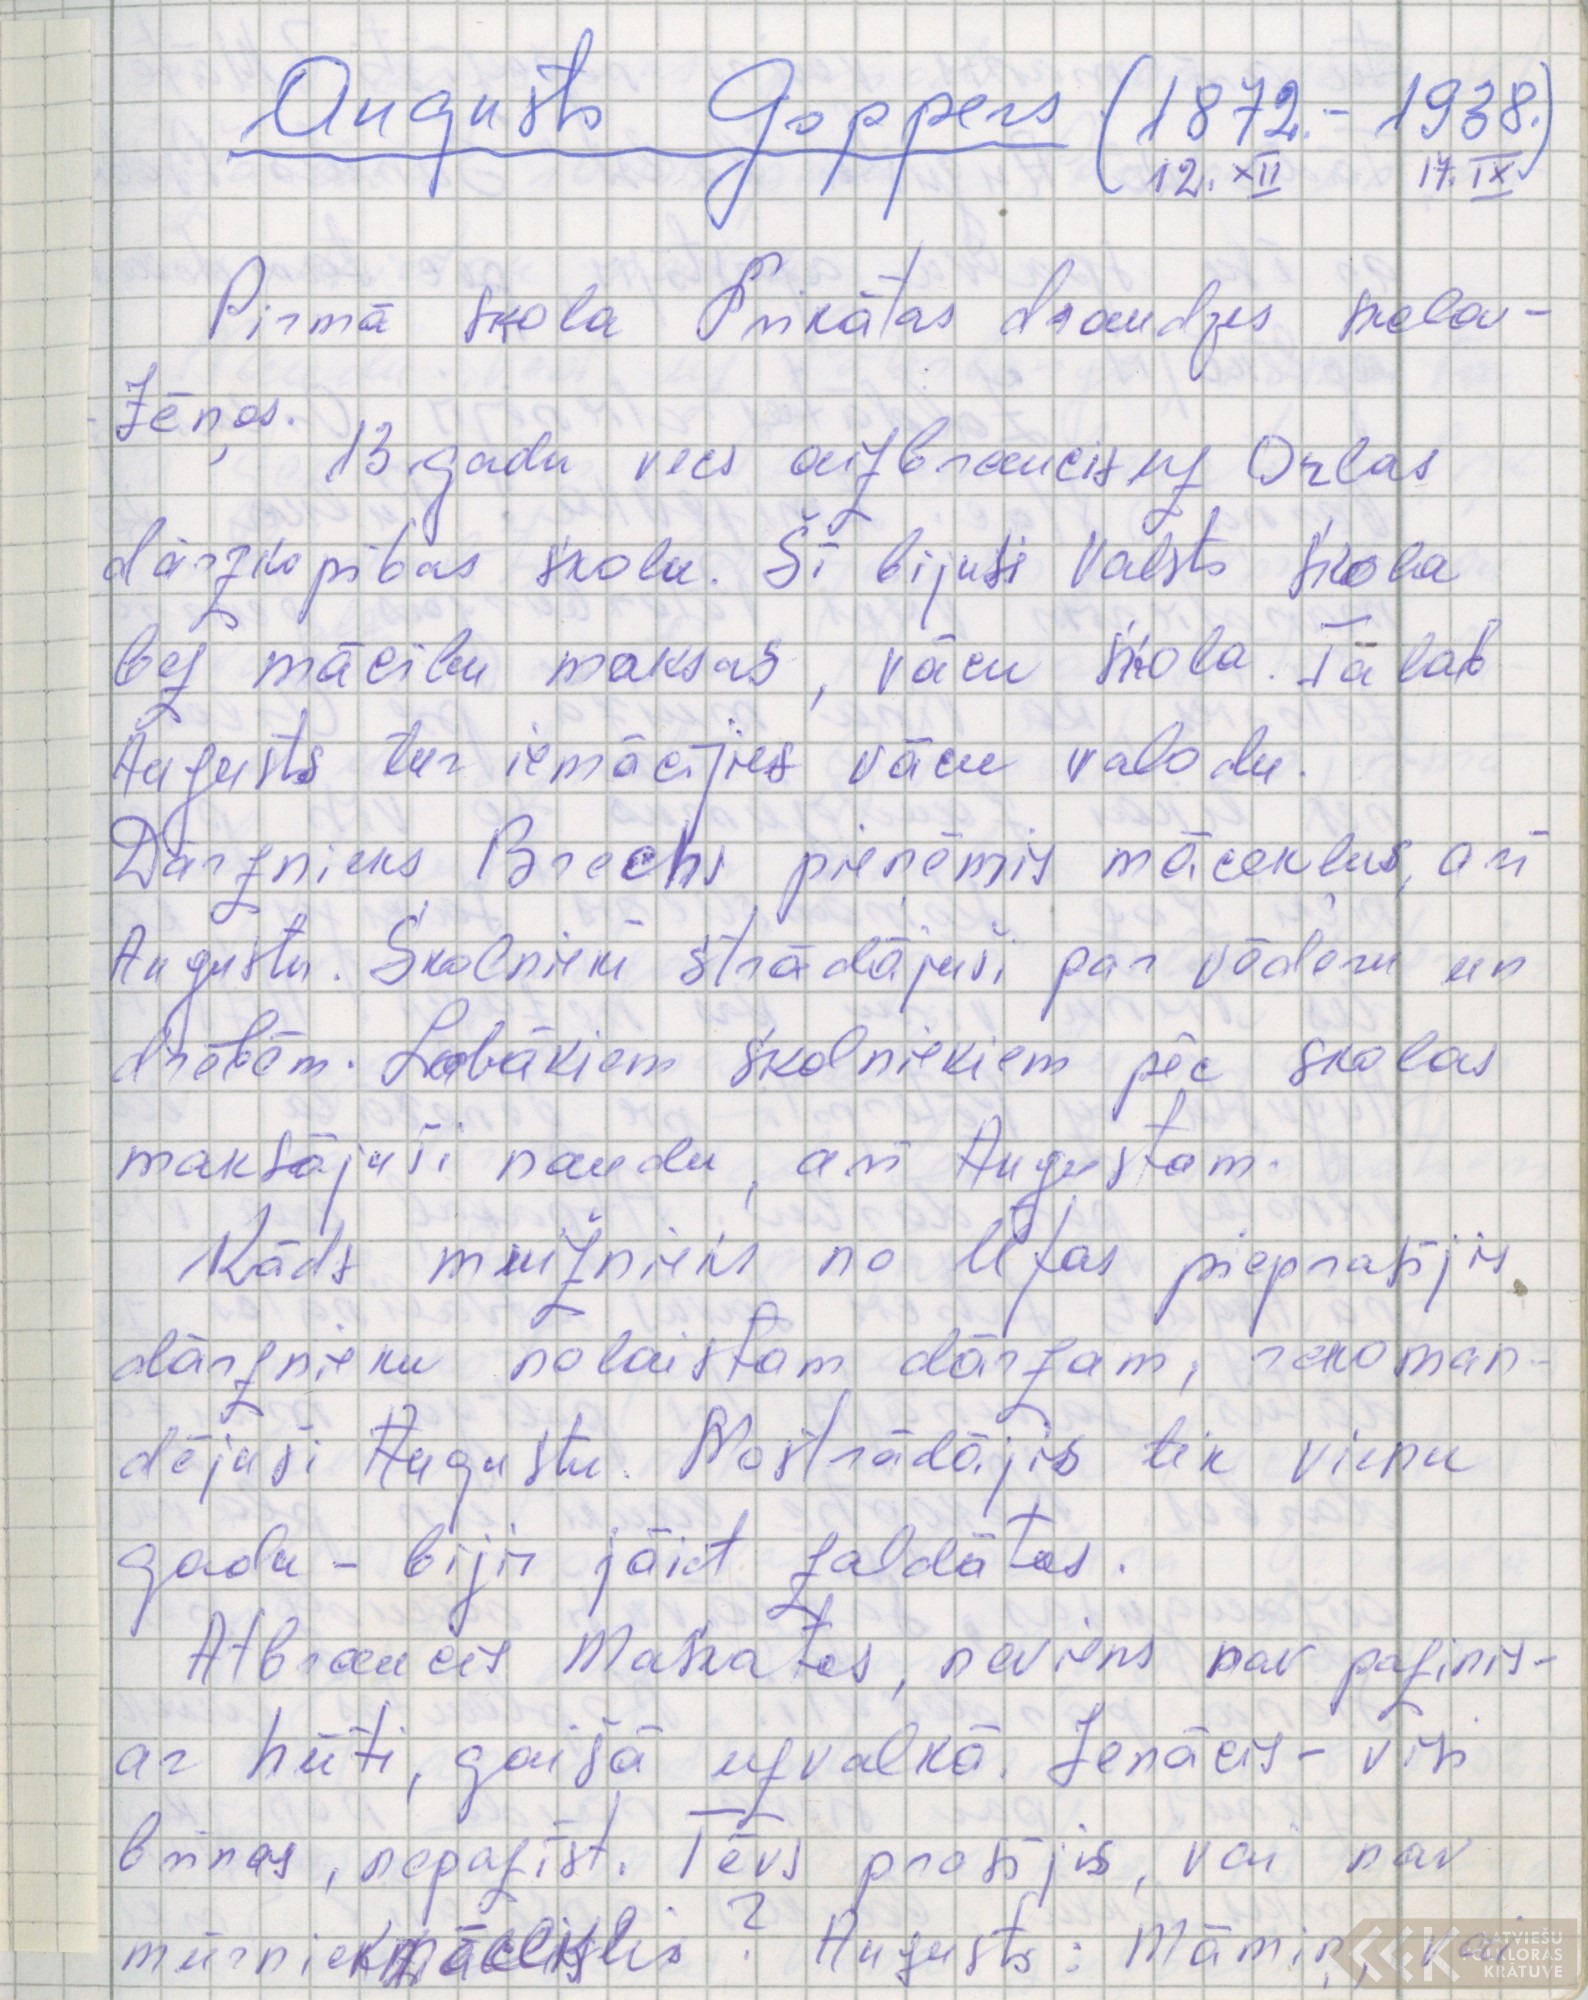 Augusts Goppers (1872. - 1938.)
12. XII 17. IX
Pirmā skola Trikātas draudzes skola -
- Zēņos.
13 gadu vecs aizbraucis uz Orlas
dārzkopības skolu. Šī bijusi Valsts skola
bez mācību maksas, vācu skola. Tālab
Augusts tur iemācījies vācu valodu.
Dārznieks Brechs pieņēmis mācekļus, arī
Augustu. Skolnieki strādājuši par vēderu un
drēbēm. Labākiem skolniekiem pēc skolas
maksājuši naudu, arī Augustam.
Kāds muižnieks no Ufas pieprasījis
dārznieku nolaistam dārzam, rekoman-
dējuši Augustu. Nostrādājis tik vienu
gadu - bijis jāiet zaldātos.
Atbraucis Maskatos, neviens nav pazinis -
ar hūti, gaišā uzvalkā. Ienācis - visi
brīnas, nepazīst. Tēvs prasījis, vai nav
mūrniekmāceklis? Augusts: Māmiņ, vai
LATVIEŠU
FOLKLORAS
KRĀTUVE